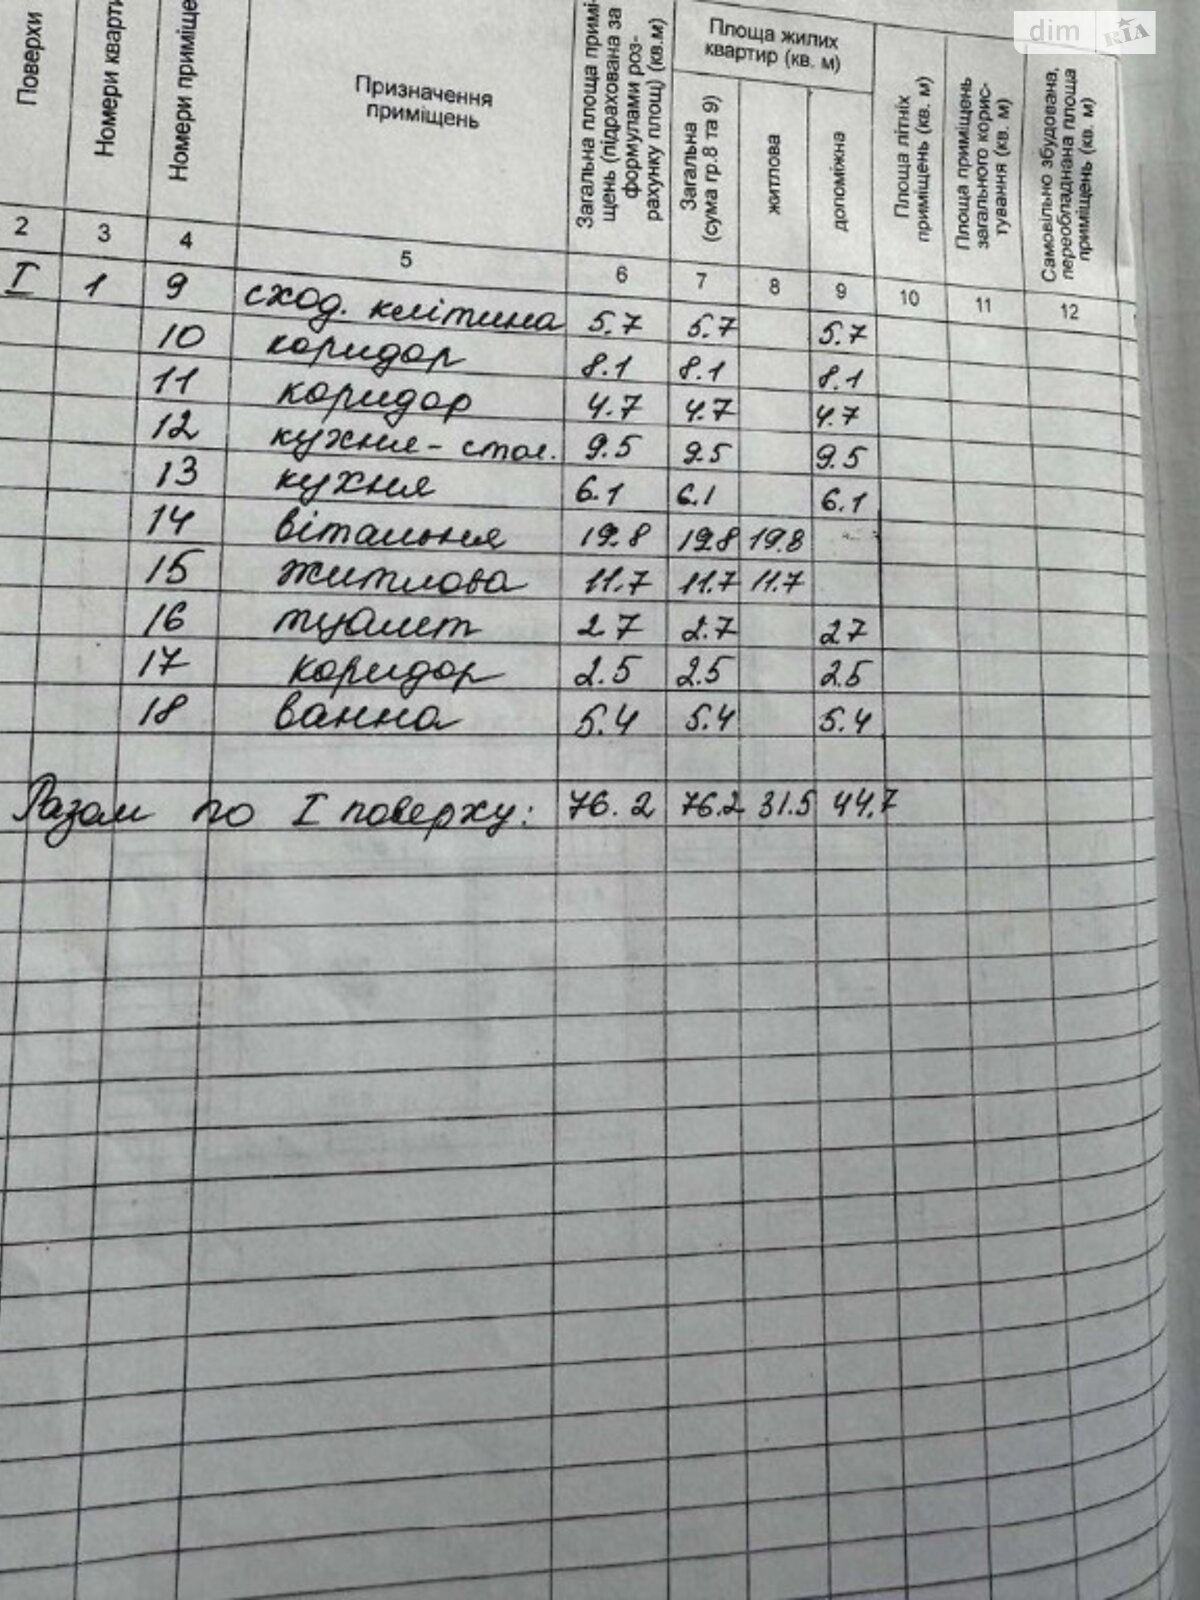 dim RIA
Поверхи
Номери кварти
Номери приміще
Призначення
приміщень
Загальна площа примі-
щень (підрахована за
формулами роз-
рахунку площ) (кв.м)
Площа жилих
квартир (кв. м)
Загальна
(сума гр.8 та 9)
житлова
допоміжна
Площа літніх
приміщень (кв. м)
Площа приміщень
загального корис-
тування (кв. м)
Самовільно збудована,
переобладнана площа
приміщень (кв. м)
2 3 4 5 6 7 8 9 10 11 12
I 1 9 сход. клітина 5.7 5.7 5.7
10 коридор 8.1 8.1 8.1
11 коридор 4.7 4.7 4.7
12 кухня-стол. 9.5 9.5 9.5
13 кухня 6.1 6.1 6.1
14 вітальня 19.8 19.8 19.8
15 житлова 11.7 11.7 11.7
16 туалет 2.7 2.7 2.7
17 коридор 2.5 2.5 2.5
18 ванна 5.4 5.4 5.4
Разом по I поверху: 76.2 76.2 31.5 44.7